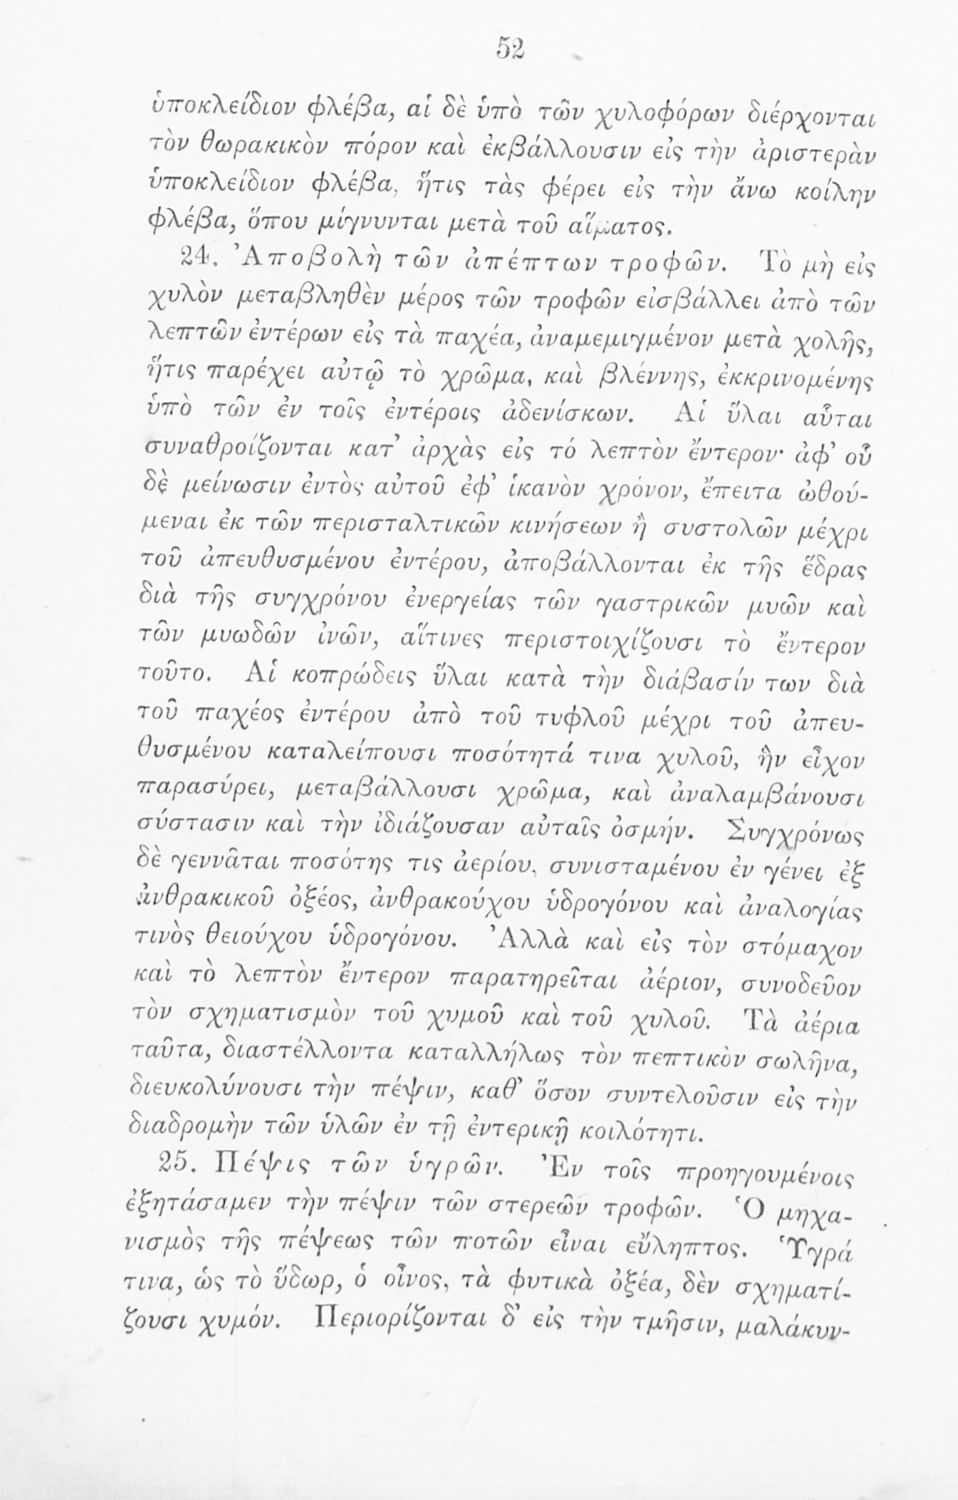 52
ὑποκλείδιον φλέβα, αἱ δὲ ὑπὸ τῶν χυλοφόρων διέρχονται
τὸν θωρακικὸν πόρον καὶ ἐκβάλλουσιν εἰς τὴν ἀριστερὰν
ὑποκλείδιον φλέβα, ἥτις τὰς φέρει εἰς τὴν ἄνω κοίλην
φλέβα, ὅπου μίγνυνται μετὰ τοῦ αἵματος.
24. Ἀποβολὴ τῶν ἀπέπτων τροφῶν. Τὸ μὴ εἰς
χυλὸν μεταβληθὲν μέρος τῶν τροφῶν εἰσβάλλει ἀπὸ τῶν
λεπτῶν ἐντέρων εἰς τὰ παχέα, ἀναμεμιγμένον μετὰ χολῆς,
ἥτις παρέχει αὐτῷ τὸ χρῶμα, καὶ βλέννης, ἐκκρινομένης
ὑπὸ τῶν ἐν τοῖς ἐντέροις ἀδενίσκων. Αἱ ὕλαι αὗται
συναθροίζονται κατ’ ἀρχὰς εἰς τό λεπτὸν ἔντερον· ἀφ’ οὗ
δὲ μείνωσιν ἐντὸς αὐτοῦ ἐφ’ ἱκανὸν χρόνον, ἔπειτα ὠθού-
μεναι ἐκ τῶν περισταλτικῶν κινήσεων ἢ συστολῶν μέχρι
τοῦ ἀπευθυσμένου ἐντέρου, ἀποβάλλονται ἐκ τῆς ἕδρας
διὰ τῆς συγχρόνου ἐνεργείας τῶν γαστρικῶν μυῶν καὶ
τῶν μυωδῶν ἰνῶν, αἵτινες περιστοιχίζουσι τὸ ἔντερον
τοῦτο. Αἱ κοπρώδεις ὕλαι κατὰ τὴν διάβασίν των διὰ
τοῦ παχέος ἐντέρου ἀπὸ τοῦ τυφλοῦ μέχρι τοῦ ἀπευ-
θυσμένου καταλείπουσι ποσότητά τινα χυλοῦ, ἣν εἶχον
παρασύρει, μεταβάλλουσι χρῶμα, καὶ ἀναλαμβάνουσι
σύστασιν καὶ τὴν ἰδιάζουσαν αὐταῖς ὀσμήν. Συγχρόνως
δὲ γεννᾶται ποσότης τις ἀερίου, συνισταμένου ἐν γένει ἐξ
ἀνθρακικοῦ ὀξέος, ἀνθρακούχου ὑδρογόνου καὶ ἀναλογίας
τινὸς θειούχου ὑδρογόνου. Ἀλλὰ καὶ εἰς τὸν στόμαχον
καὶ τὸ λεπτὸν ἔντερον παρατηρεῖται ἀέριον, συνοδεῦον
τὸν σχηματισμὸν τοῦ χυμοῦ καὶ τοῦ χυλοῦ. Τὰ ἀέρια
ταῦτα, διαστέλλοντα καταλλήλως τὸν πεπτικὸν σωλῆνα,
διευκολύνουσι τὴν πέψιν, καθ’ ὅσον συντελοῦσιν εἰς τὴν
διαδρομὴν τῶν ὑλῶν ἐν τῇ ἐντερικῇ κοιλότητι.
25. Πέψις τῶν ὑγρῶν. Ἐν τοῖς προηγουμένοις
ἐξητάσαμεν τὴν πέψιν τῶν στερεῶν τροφῶν. Ὁ μηχα-
νισμὸς τῆς πέψεως τῶν ποτῶν εἶναι εὔληπτος. Ὑγρά
τινα, ὡς τὸ ὕδωρ, ὁ οἶνος, τὰ φυτικὰ ὀξέα, δὲν σχηματί-
ζουσι χυμόν. Περιορίζονται δ’ εἰς τὴν τμῆσιν, μαλάκυν-